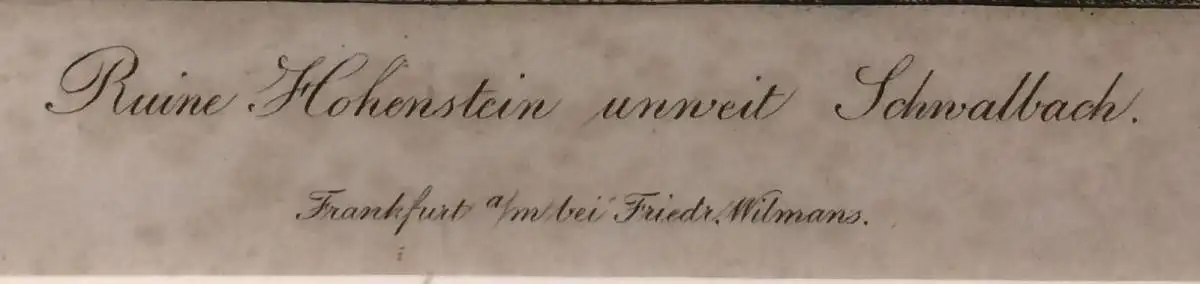 Ruine Hohenstein unweit Schwalbach.
Frankfurt a/m bei Friedr. Wilmans.